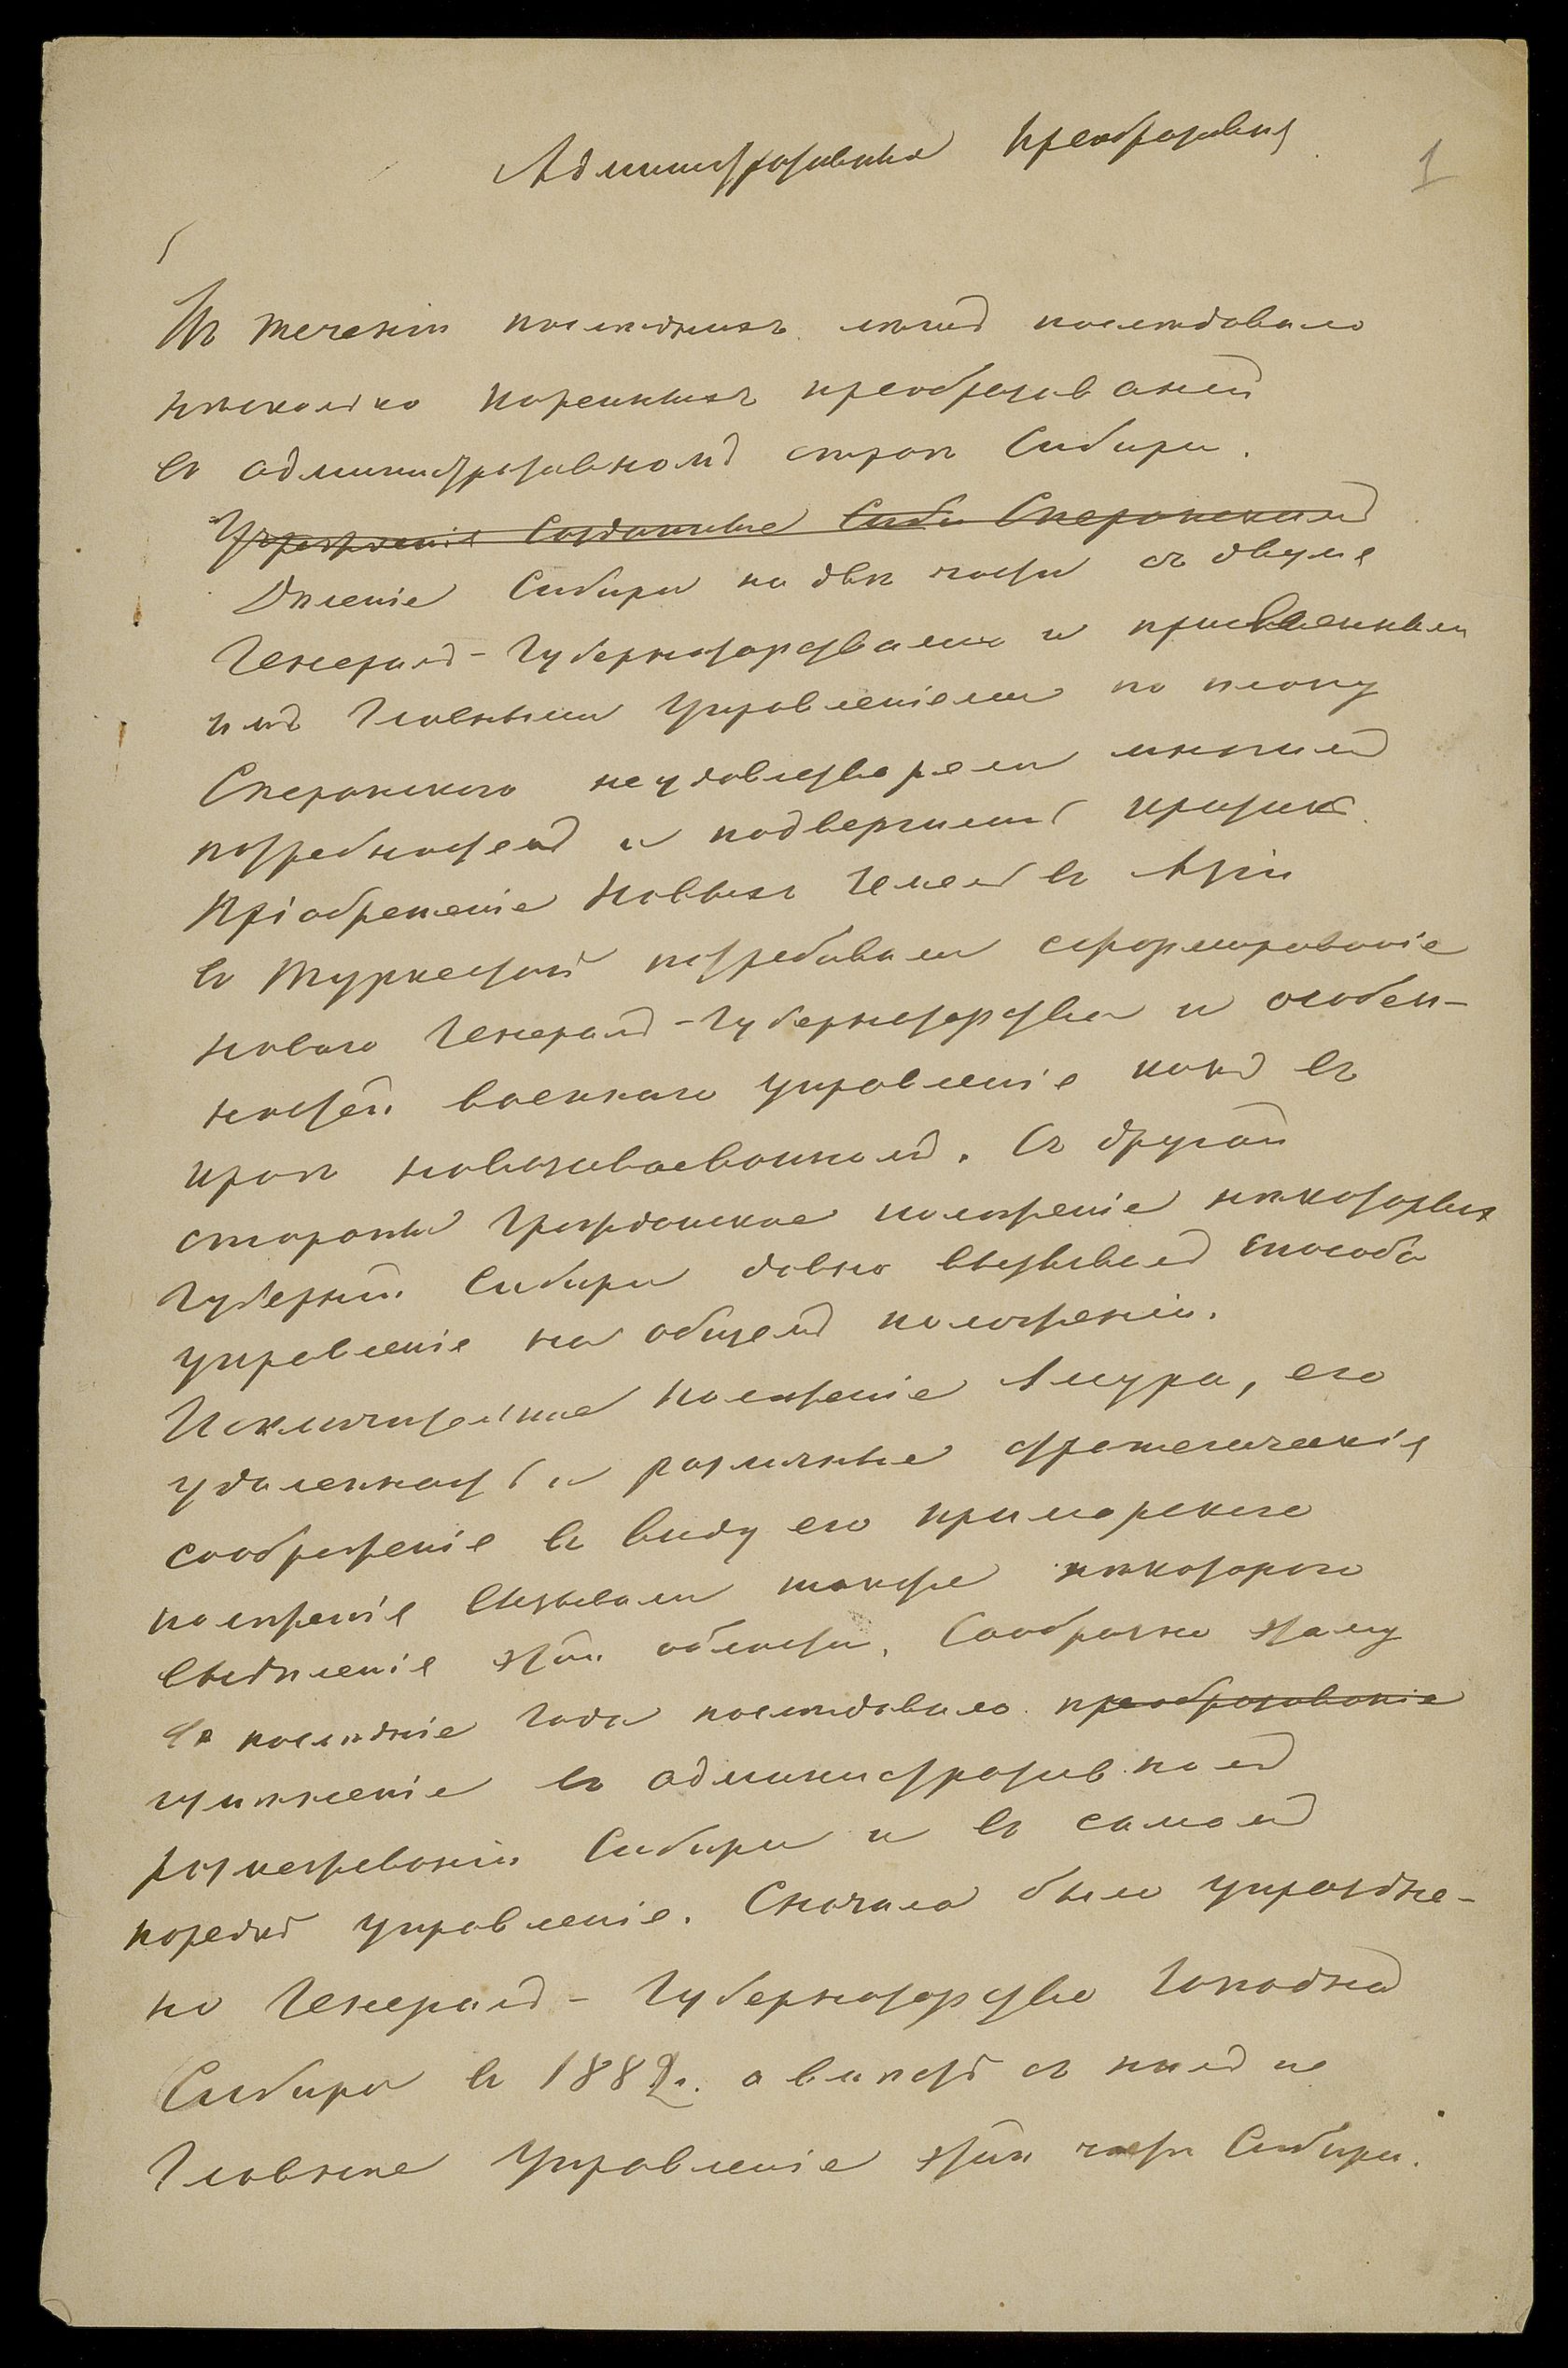 Административныя преобразованія
1
Въ теченіи послѣднихъ лѣтъ послѣдовало
нѣсколько коренныхъ преобразованій
въ административномъ строѣ Сибири.
Учрежденія созданные Сиби Сперанскимъ
Дѣленіе Сибири на двѣ части съ двумя
Генералъ-Губернаторствами и
имъ Главными Управленіями по плану
Сперанскаго неудовлетворяли многимъ
потребностямъ и подвергались критикѣ.
Пріобретеніе новыхъ земель въ Азіи
въ Туркестанѣ потребовали сформированіе
новаго Генералъ-Губернаторства и особен-
ностей военнаго управленія какъ въ
краѣ новозавоеванномъ. Съ другой
стороны гражданское положеніе нѣкоторыхъ
губерній Сибири давно вызывало способа
управленія на общемъ положеніи.
Исключительное положеніе Амура, его
удаленность и различные стратегическія
соображенія въ виду его приморскаго
положенія вызывали также нѣкотораго
выдѣленія этой области. Сообразно этому
въ послѣдніе года послѣдовало преобразованіе
измѣненіе въ административномъ
разчетвованіи Сибири и въ самомъ
порядкѣ управленія. Сначала было упраздне-
но Генералъ-Губернаторство Западной
Сибири въ 1882 г. а вмѣстѣ съ нимъ и
Главное Управленіе этой части Сибири.